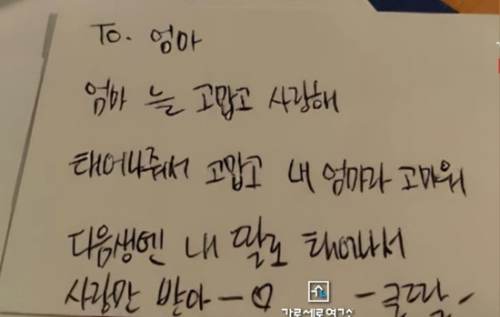 To. 엄마
엄마 늘 고맙고 사랑해
태어나줘서 고맙고 내 엄마라 고마워
다음생엔 내 딸로 태어나서
사랑만 받아 ー ♡ -큰딸-
가로세로연구소